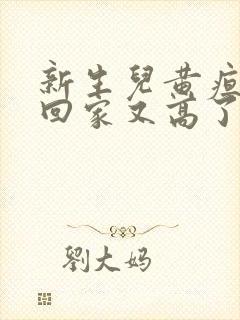 新生兒黄疸
回家又高了
劉大妈